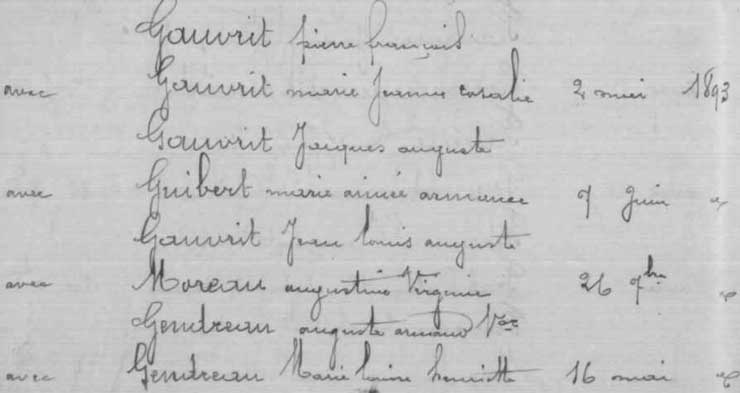 Gauvrit pierre françois
avec Gauvrit marie Jeanne rosalie 2 mai 1893
Gauvrit Jacques auguste
avec Guibert marie aimée armance 7 Juin
Gauvrit Jean louis auguste
avec Moreau augustine Virginie 26 7bre
Gendreau auguste armand
avec Gendreau Marie louise henriette 16 mai